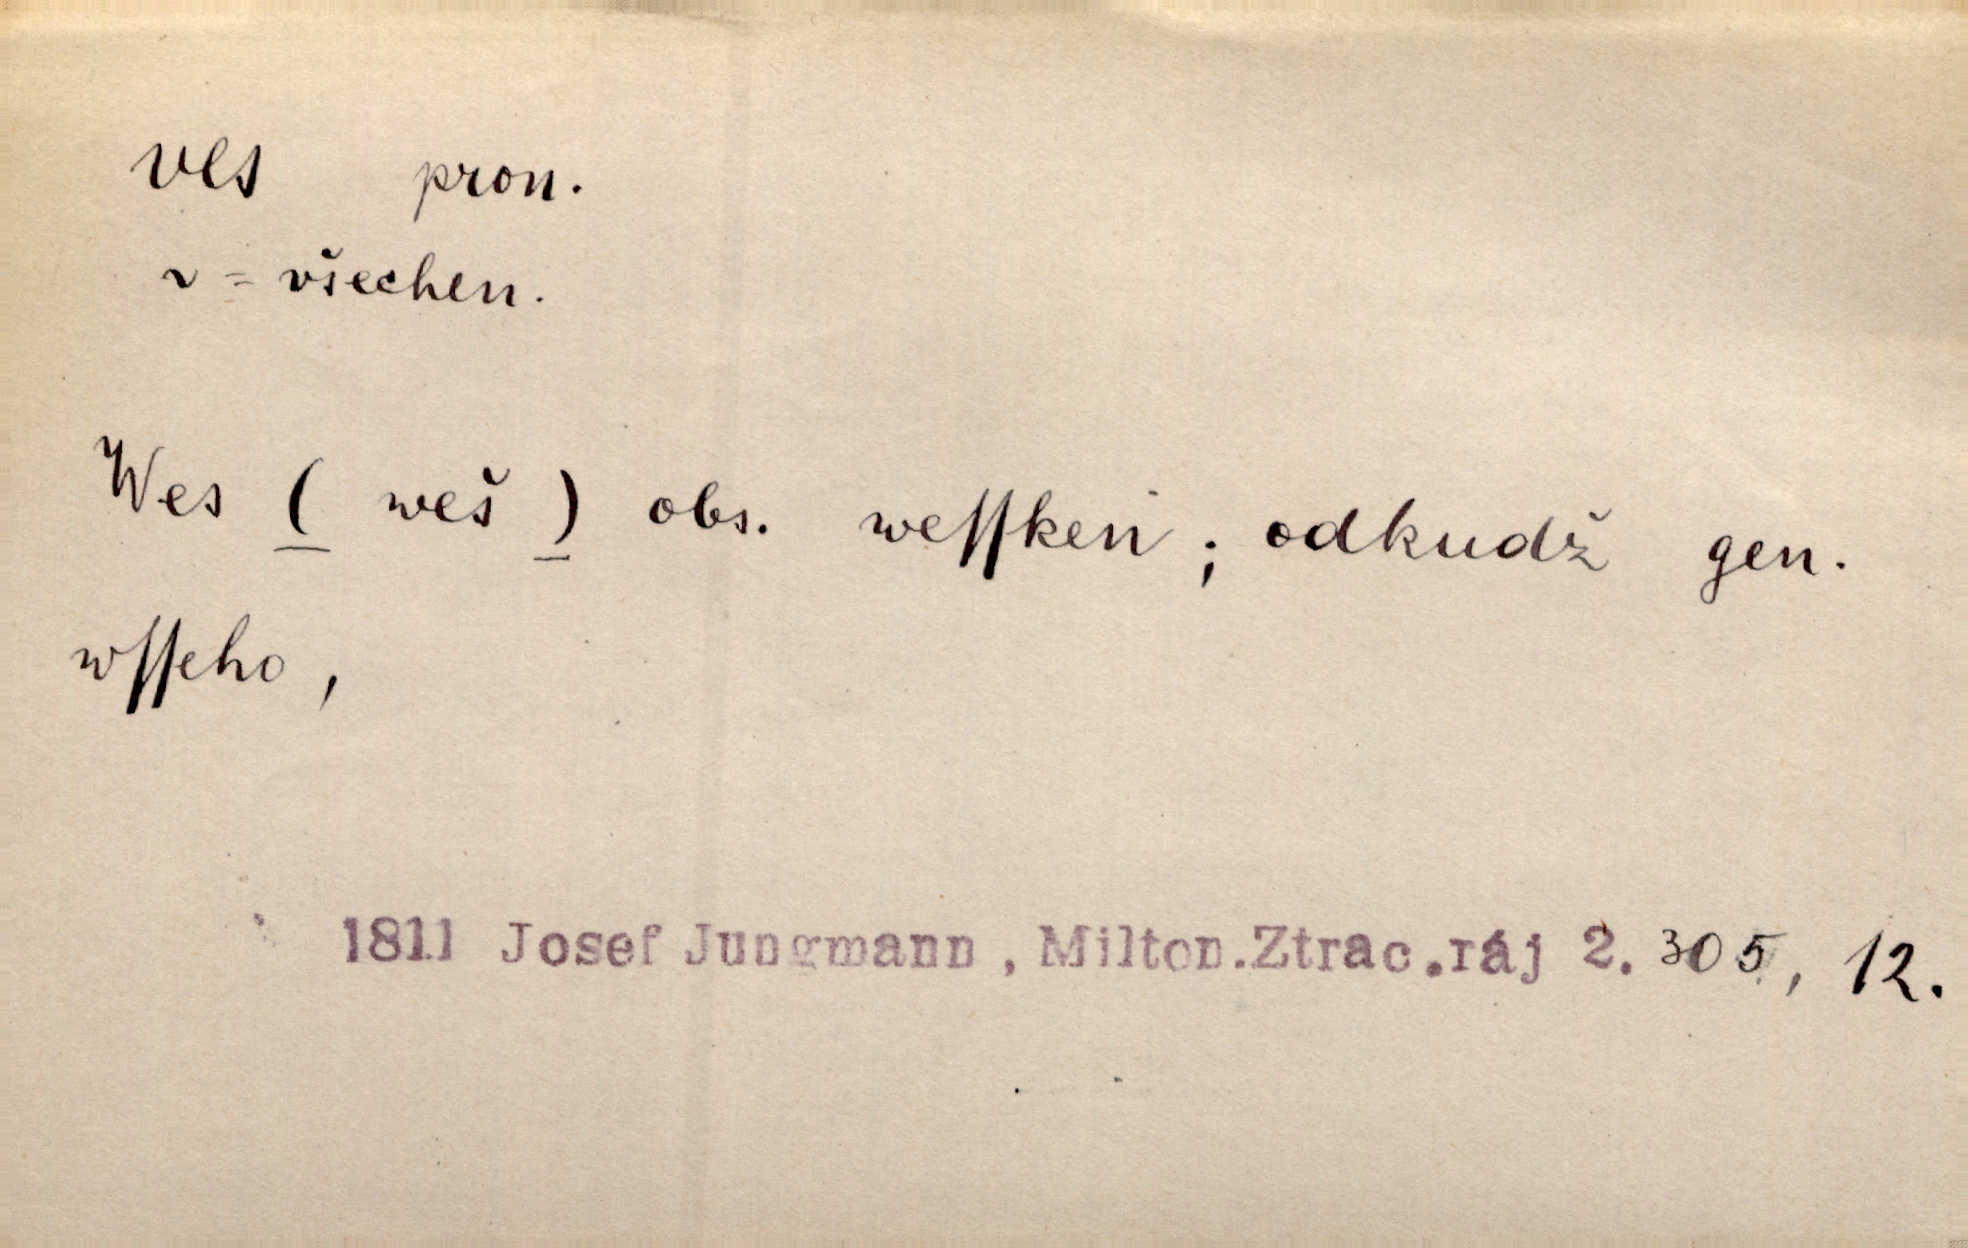 ves pron.
~ = všechen.
Wes ( weš ) obs. weſſkeň ; odkudž gen.
wſſeho ,
1811 Josef Jungmann , Milton.Ztrac.ráj 2. 305, 12.